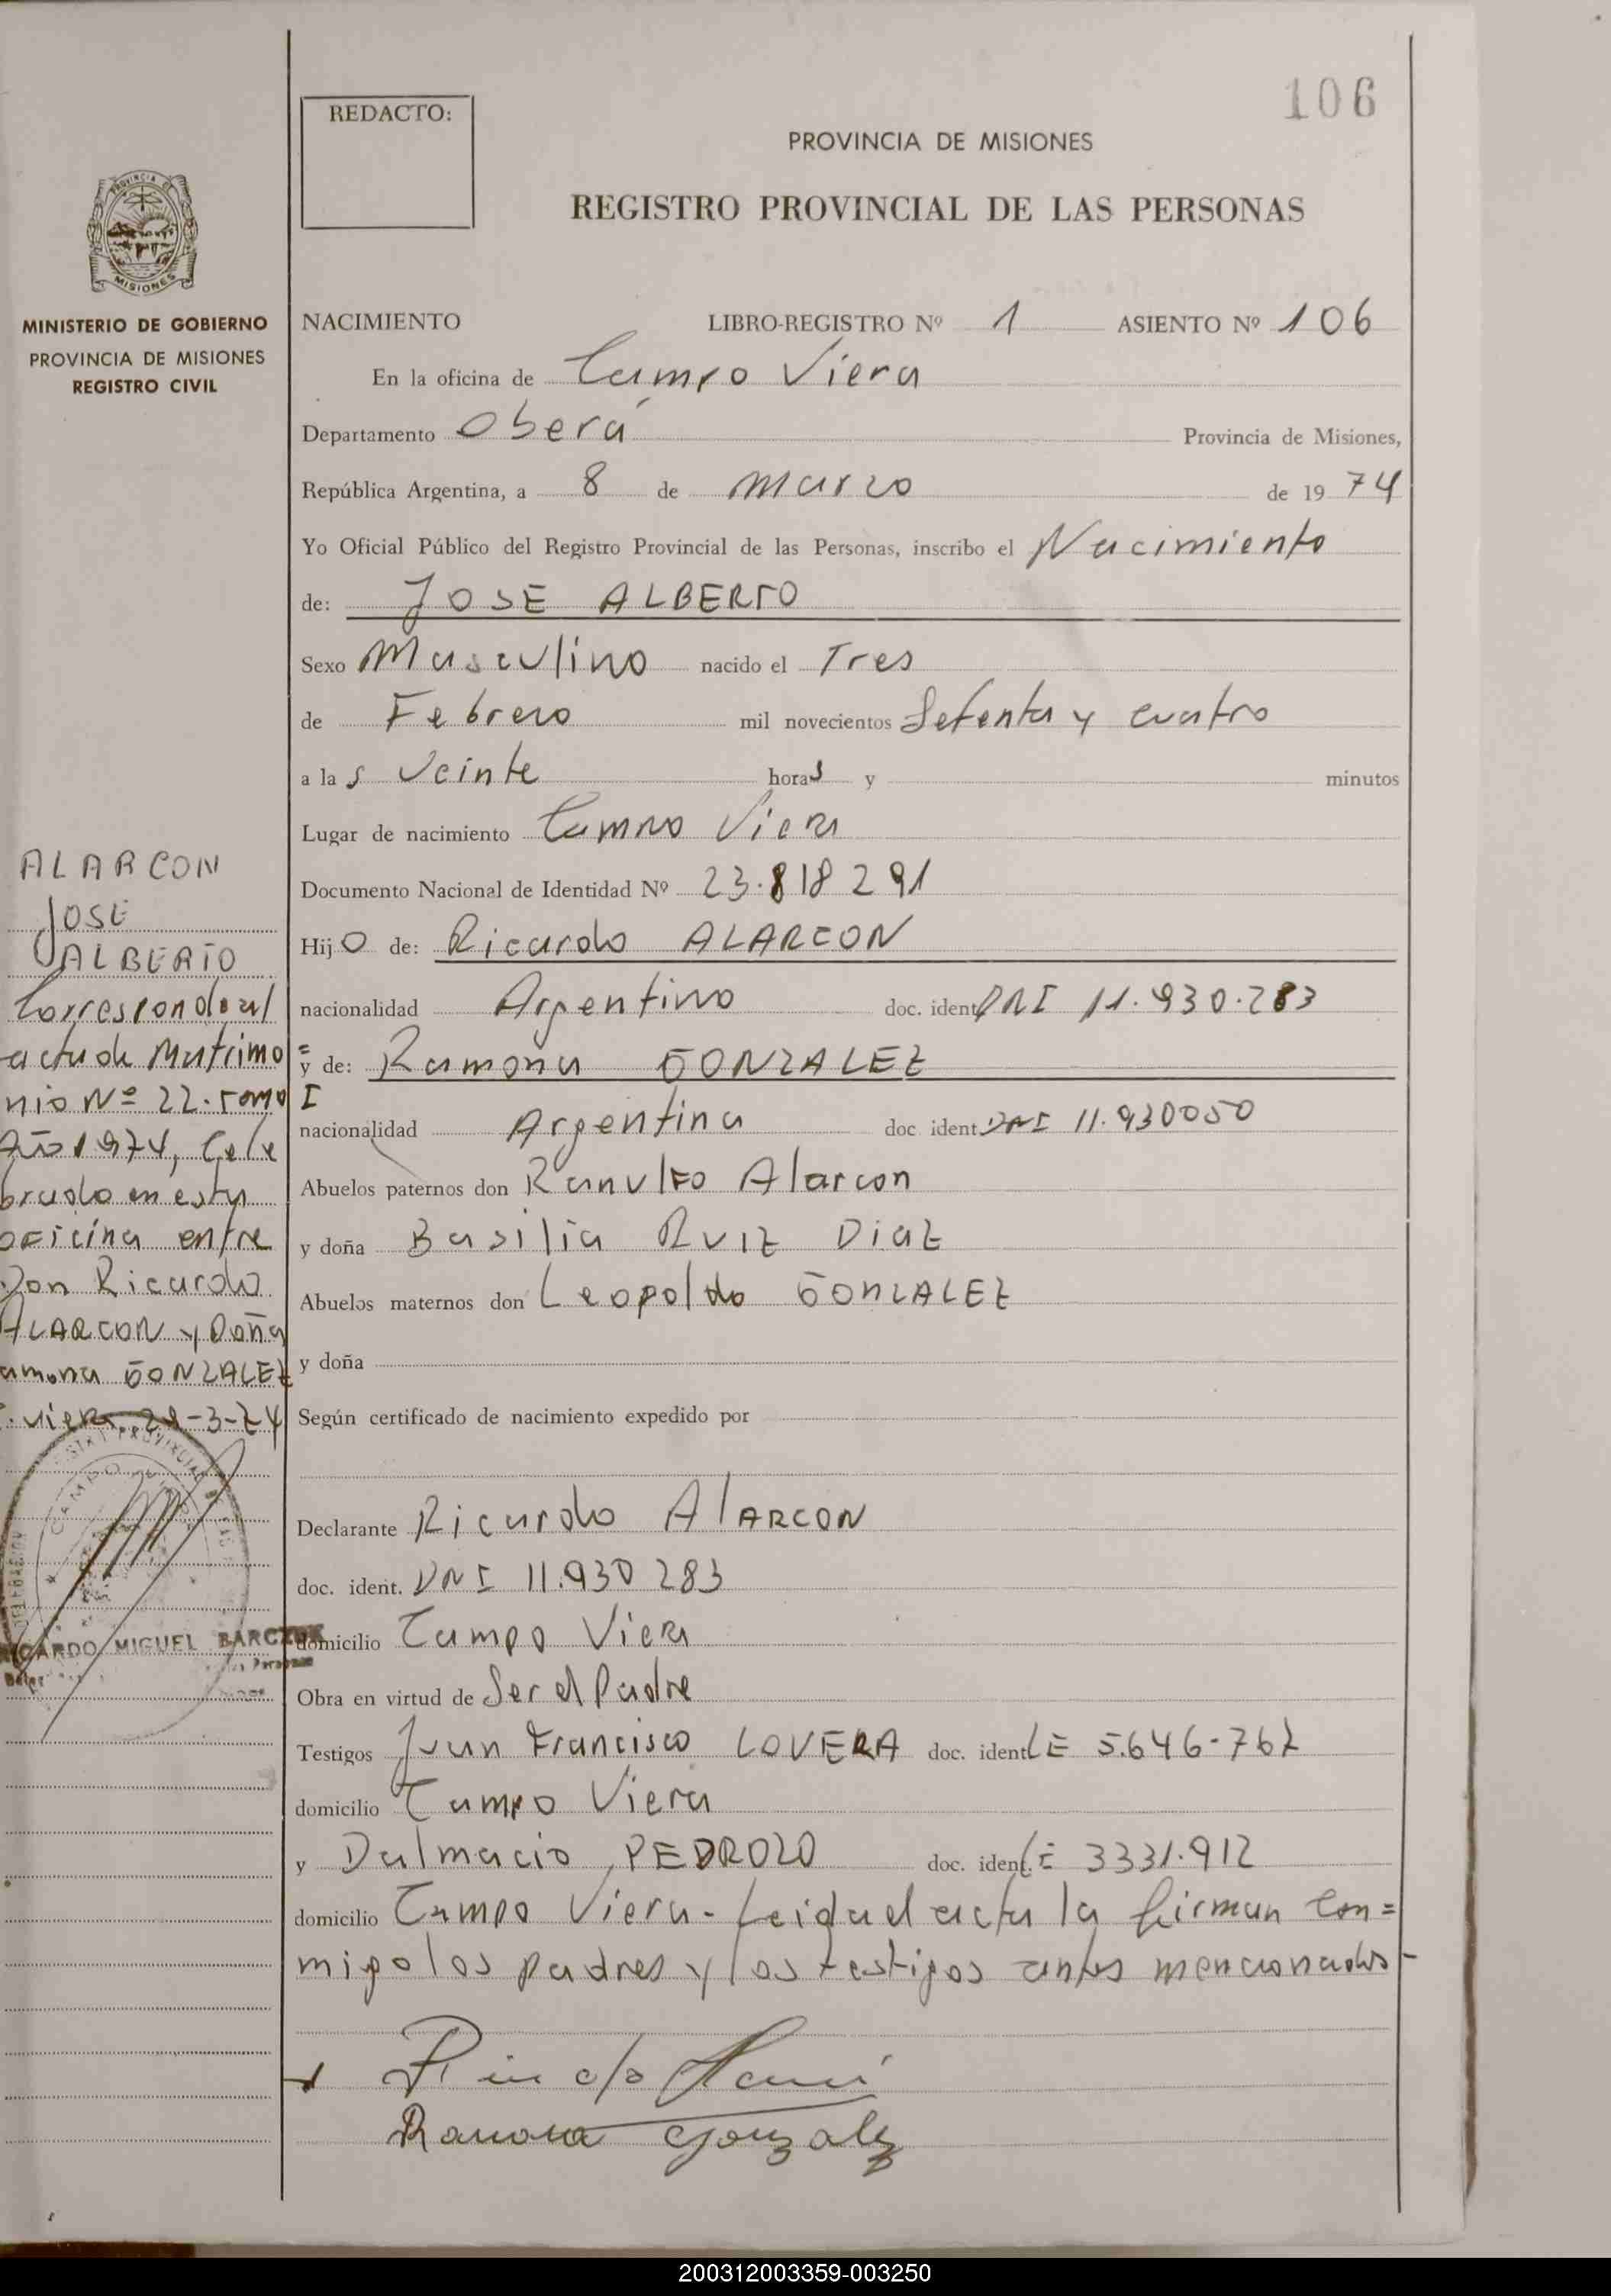 106
REDACTO:
PROVINCIA DE MISIONES
REGISTRO PROVINCIAL DE LAS PERSONAS
MINISTERIO DE GOBIERNO
PROVINCIA DE MISIONES
REGISTRO CIVIL
NACIMIENTO LIBRO-REGISTRO Nº 1 ASIENTO Nº 106
En la oficina de Campo Viera
Departamento Oberá Provincia de Misiones,
República Argentina, a 8 de Marzo de 1974
Yo Oficial Público del Registro Provincial de las Personas, inscribo el Nacimiento
de: JOSE ALBERTO
Sexo Masculino nacido el Tres
de Febrero mil novecientos Setenta y cuatro
a las Veinte horas y minutos
Lugar de nacimiento Campo Viera
Documento Nacional de Identidad Nº 23.818291
Hijo de: Ricardo ALARCON
nacionalidad Argentino doc. ident DNI 11.930.283
y de: Ramona GONZALEZ
nacionalidad Argentina doc. ident. DNI 11.930050
Abuelos paternos don Ranulfo Alarcon
y doña Basilia RUIZ DiaZ
Abuelos maternos don Leopoldo GONZALEZ
y doña
Según certificado de nacimiento expedido por
Declarante Ricardo AlARCON
doc. ident. DNI 11.930283
domicilio Campo Viera
Obra en virtud de Ser el Padre
Testigos Juan Francisco LOVERA doc. ident LE 5.646-762
domicilio Campo Viera
y Dalmacio PEDROZO doc. ident. LE 3331.912
domicilio Campo Viera- Leida el acta la firman con=
migo los padres y los testigos antes mencionados-
Ramona Gonzalez
ALARCON
JOSE
ALBERTO
Corresponde al
acta de Matrimo=
nio Nº 22. Tomo I
Año 1974, Cele
brado en esta
oficina entre
Don Ricardo
ALARCON y Doña
amona GONZALEZ
. Viera 29-3-74
CAMPO
RICARDO MIGUEL BARCZUK
200312003359-003250